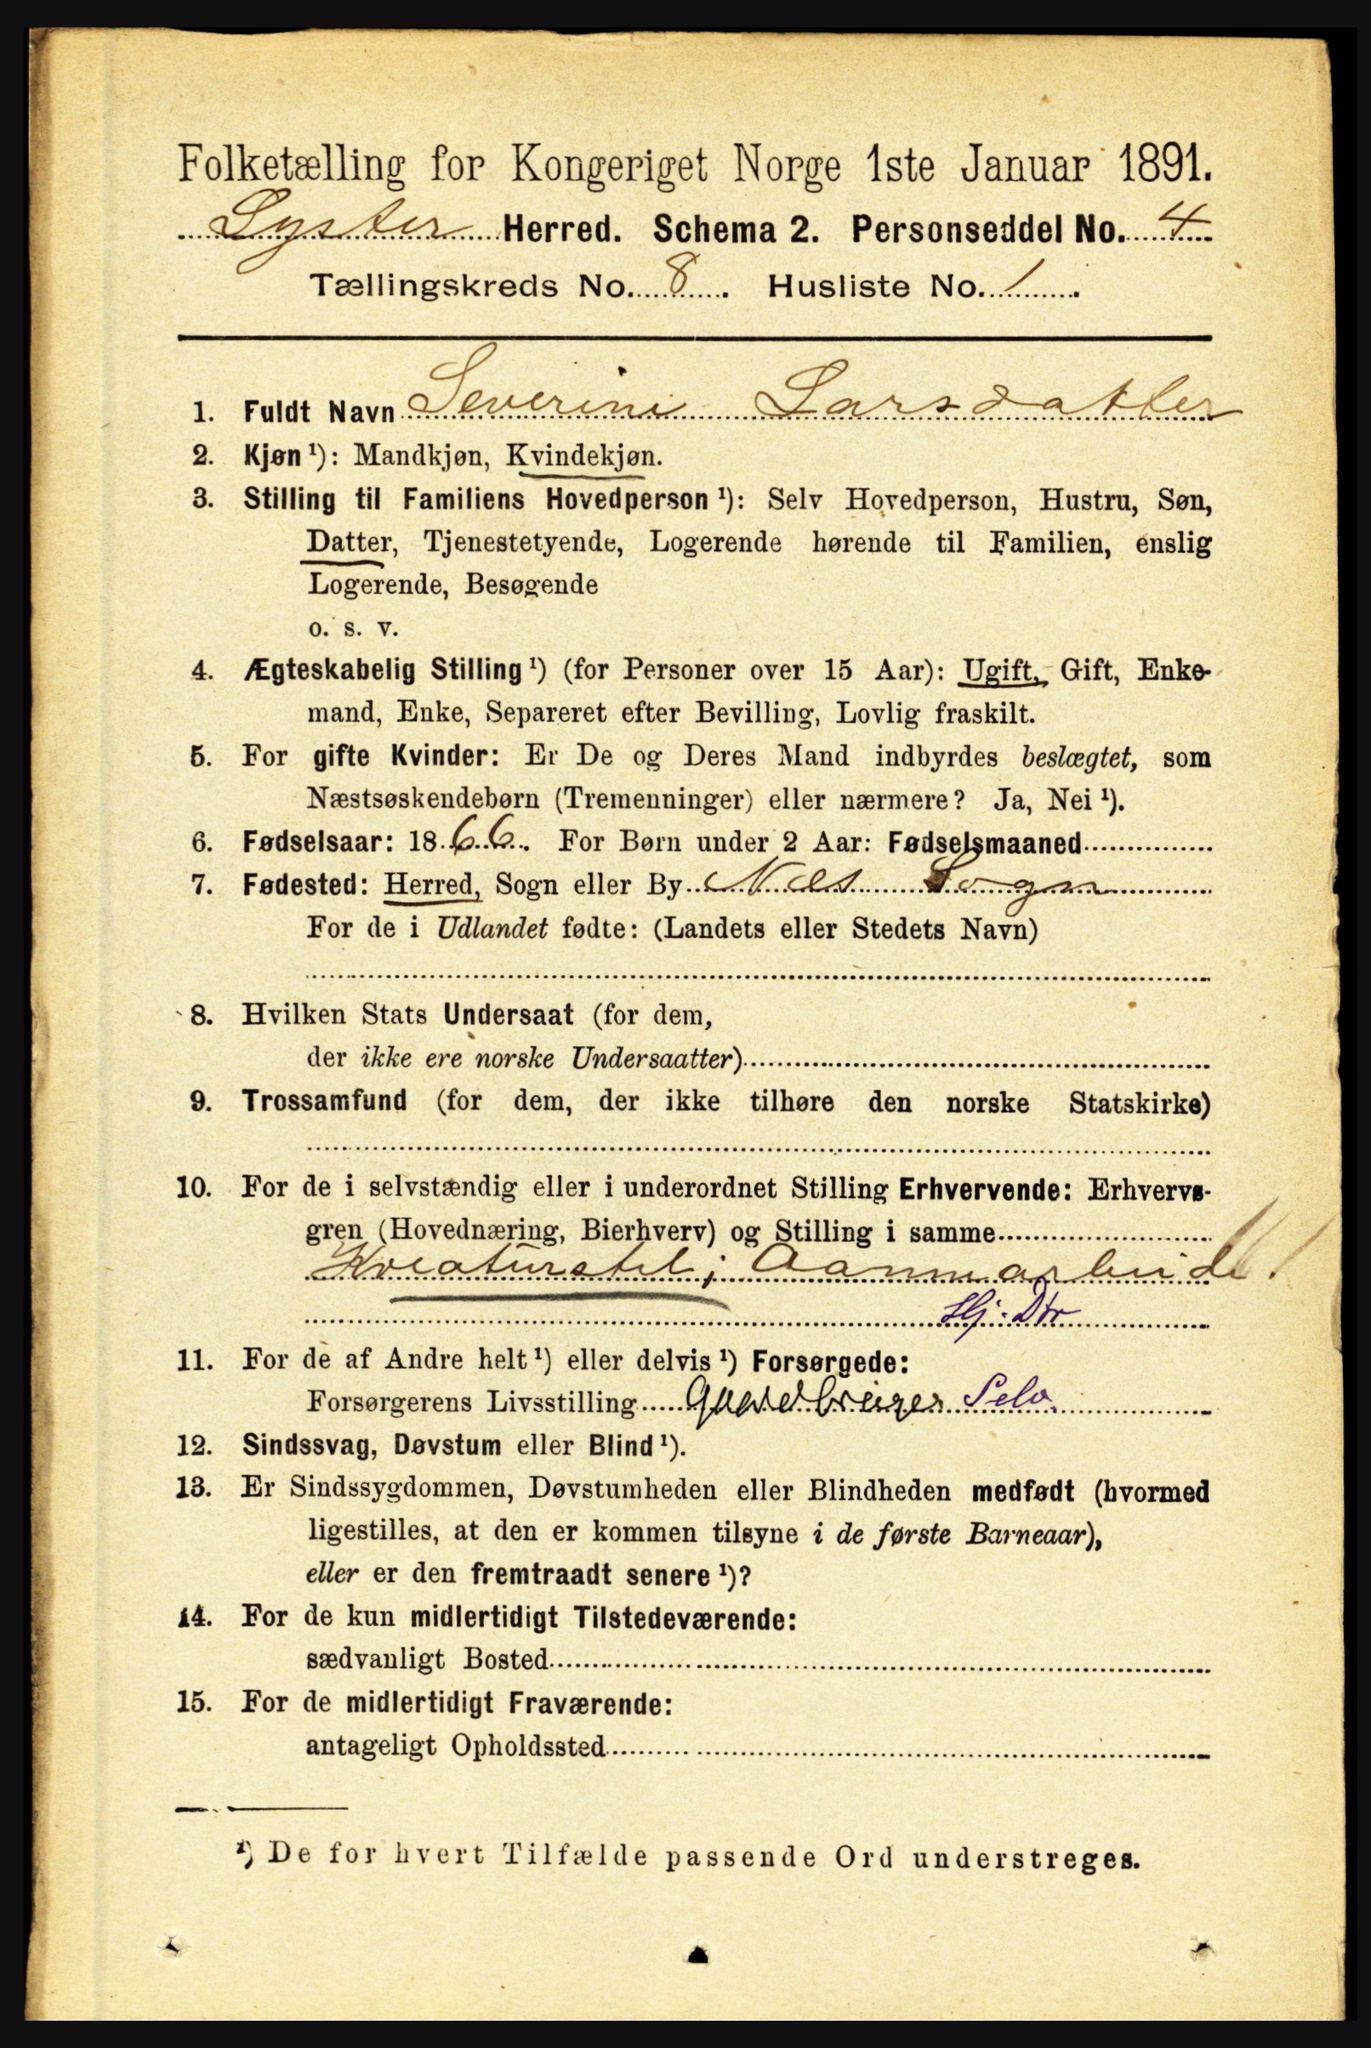 Folketælling for Kongeriget Norge 1ste Januar 1891.
Lyster Herred. Schema 2. Personseddel No. 4
Tællingskreds No. 8. Husliste No. 1.
1. Fuldt Navn Severine Larsdatter
2. Kjøn ¹): Mandkjøn, Kvindekjøn.
3. Stilling til Familiens Hovedperson ¹): Selv Hovedperson, Hustru, Søn,
Datter, Tjenestetyende, Logerende hørende til Familien, enslig
Logerende, Besøgende
o. s. v.
4. Ægteskabelig Stilling ¹) (for Personer over 15 Aar): Ugift, Gift, Enke-
mand, Enke, Separeret efter Bevilling, Lovlig fraskilt.
5. For gifte Kvinder: Er De og Deres Mand indbyrdes beslægtet, som
Næstsøskendebørn (Tremenninger) eller nærmere? Ja, Nei ¹).
6. Fødselsaar: 1866. For Børn under 2 Aar: Fødselsmaaned
7. Fødested: Herred, Sogn eller By Næs Sogn
For de i Udlandet fødte: (Landets eller Stedets Navn)
8. Hvilken Stats Undersaat (for dem,
der ikke ere norske Undersaatter)
9. Trossamfund (for dem, der ikke tilhøre den norske Statskirke)
10. For de i selvstændig eller i underordnet Stilling Erhvervende: Erhvervs-
gren (Hovednæring, Bierhverv) og Stilling i samme
Kreaturstel; Aannearbeide!
Hj. Dtr
11. For de af Andre helt ¹) eller delvis ¹) Forsørgede:
Forsørgerens Livsstilling Gaardbruger Selv.
12. Sindssvag, Døvstum eller Blind ¹).
13. Er Sindssygdommen, Døvstumheden eller Blindheden medfødt (hvormed
ligestilles, at den er kommen tilsyne i de første Barneaar),
eller er den fremtraadt senere ¹)?
14. For de kun midlertidigt Tilstedeværende:
sædvanligt Bosted
15. For de midlertidigt Fraværende:
antageligt Opholdssted
¹) De for hvert Tilfælde passende Ord understreges.